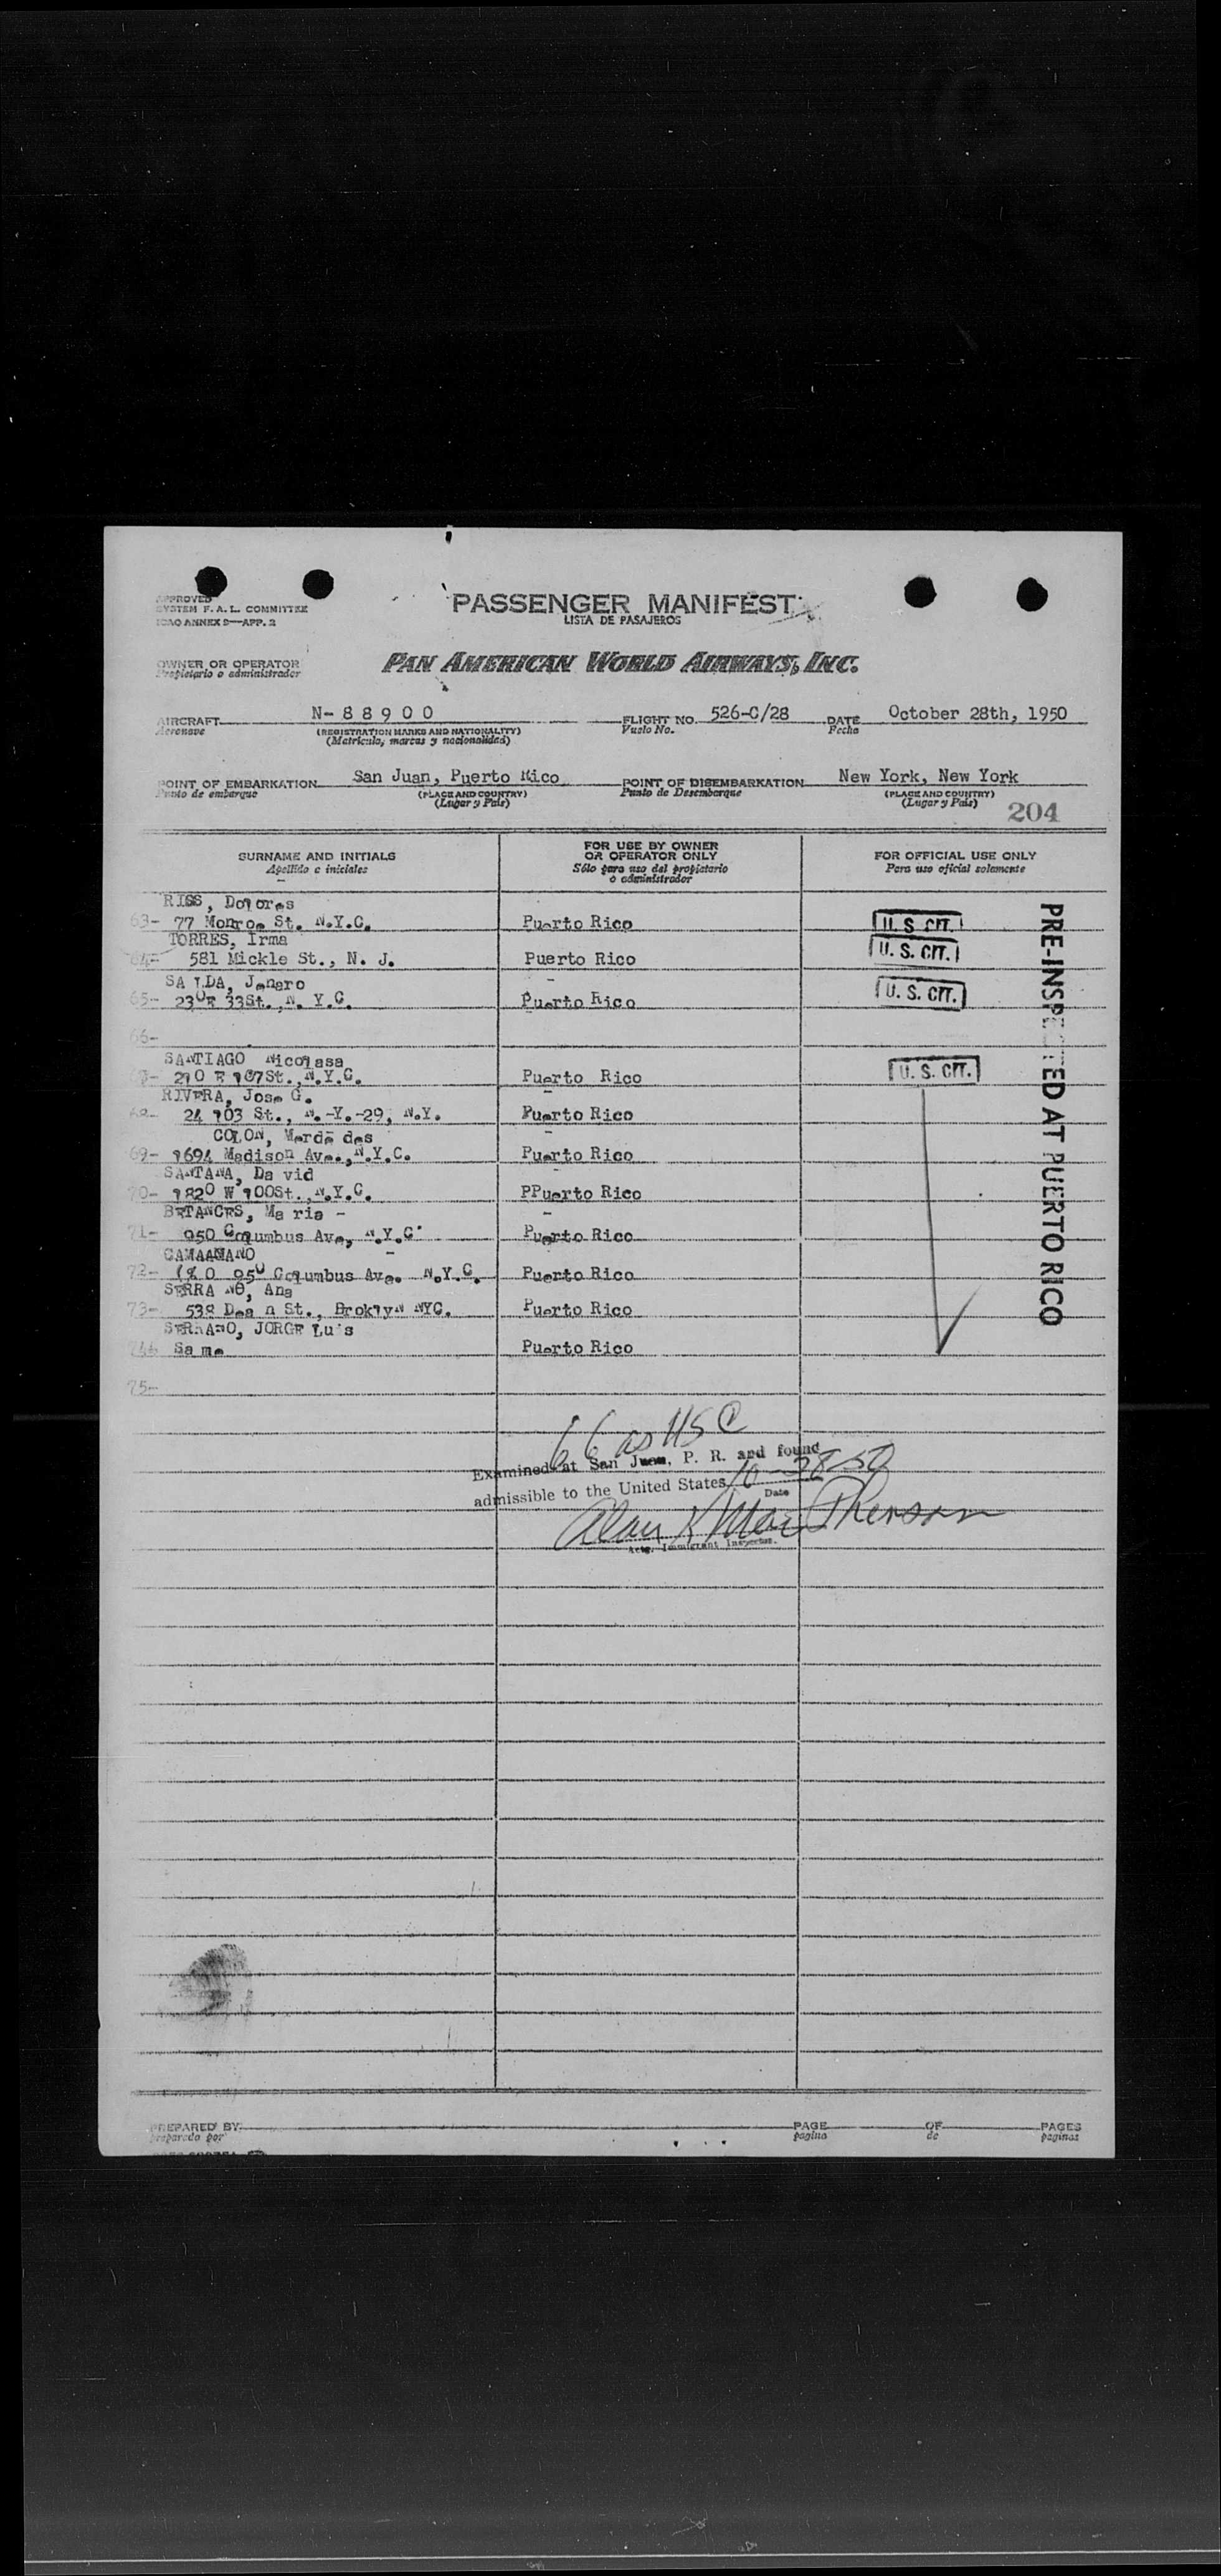 APPROVED
SYSTEM F. A. L. COMMITTEE
ICAO ANNEX 9—APP. 2
PASSENGER MANIFEST
LISTA DE PASAJEROS
OWNER OR OPERATOR
Propietario o administrador
PAN AMERICAN WORLD AIRWAYS, INC.
AIRCRAFT N- 8 8 9 0 0 FLIGHT NO. 526-C/28 DATE October 28th, 1950
Aeronave (REGISTRATION MARKS AND NATIONALITY) Vuelo No. Fecha
(Matrícula, marcas y nacionalidad)
POINT OF EMBARKATION San Juan, Puerto Rico POINT OF DISEMBARKATION New York, New York
Punto de embarque (PLACE AND COUNTRY) Punto de Desembarque (PLACE AND COUNTRY)
(Lugar y País) (Lugar y País)
204
SURNAME AND INITIALS
Apellido e iniciales
FOR USE BY OWNER
OR OPERATOR ONLY
Sólo para uso del propietario
o administrador
FOR OFFICIAL USE ONLY
Para uso oficial solamente
RIOS, Dolores
63- 77 Monroe St. N.Y.C. Puerto Rico U. S. CIT.
TORRES, Irma
64- 581 Mickle St., N. J. Puerto Rico U. S. CIT.
SA LDA, Jenaro
65- 230E 33St., N. Y.C. Puerto Rico U. S. CIT.
66-
SANTIAGO Nicolasa
67- 210 E 107St., N.Y.C. Puerto Rico U. S. CIT.
RIVERA, Jose G.
68- 24 103 St., N.-Y.-29, N.Y. Puerto Rico
COLON, Merde des
69- 1694 Madison Ave., N.Y.C. Puerto Rico
SANTANA, Da vid
70- 1820 W 100St., N.Y.C. PPuerto Rico
BETANCES, Ma ria -
71- 950 Columbus Ave, N.Y.C. Puerto Rico
CAMAAMANO
72- 950 Columbus Ave. N.Y.C. Puerto Rico
SERRA NO, Ana
73- 538 Dea n St., Broklyn NYC. Puerto Rico
SERRANO, JORGE Luis
74- Sa me Puerto Rico
75-
PRE-INSPECTED AT PUERTO RICO
66 as USC
Examined at San Juan, P. R. and found
admissible to the United States 10-28-50
Date
Alan K MacPherson
Actg. Immigrant Inspector.
PREPARED BY PAGE OF PAGES
preparado por página de páginas